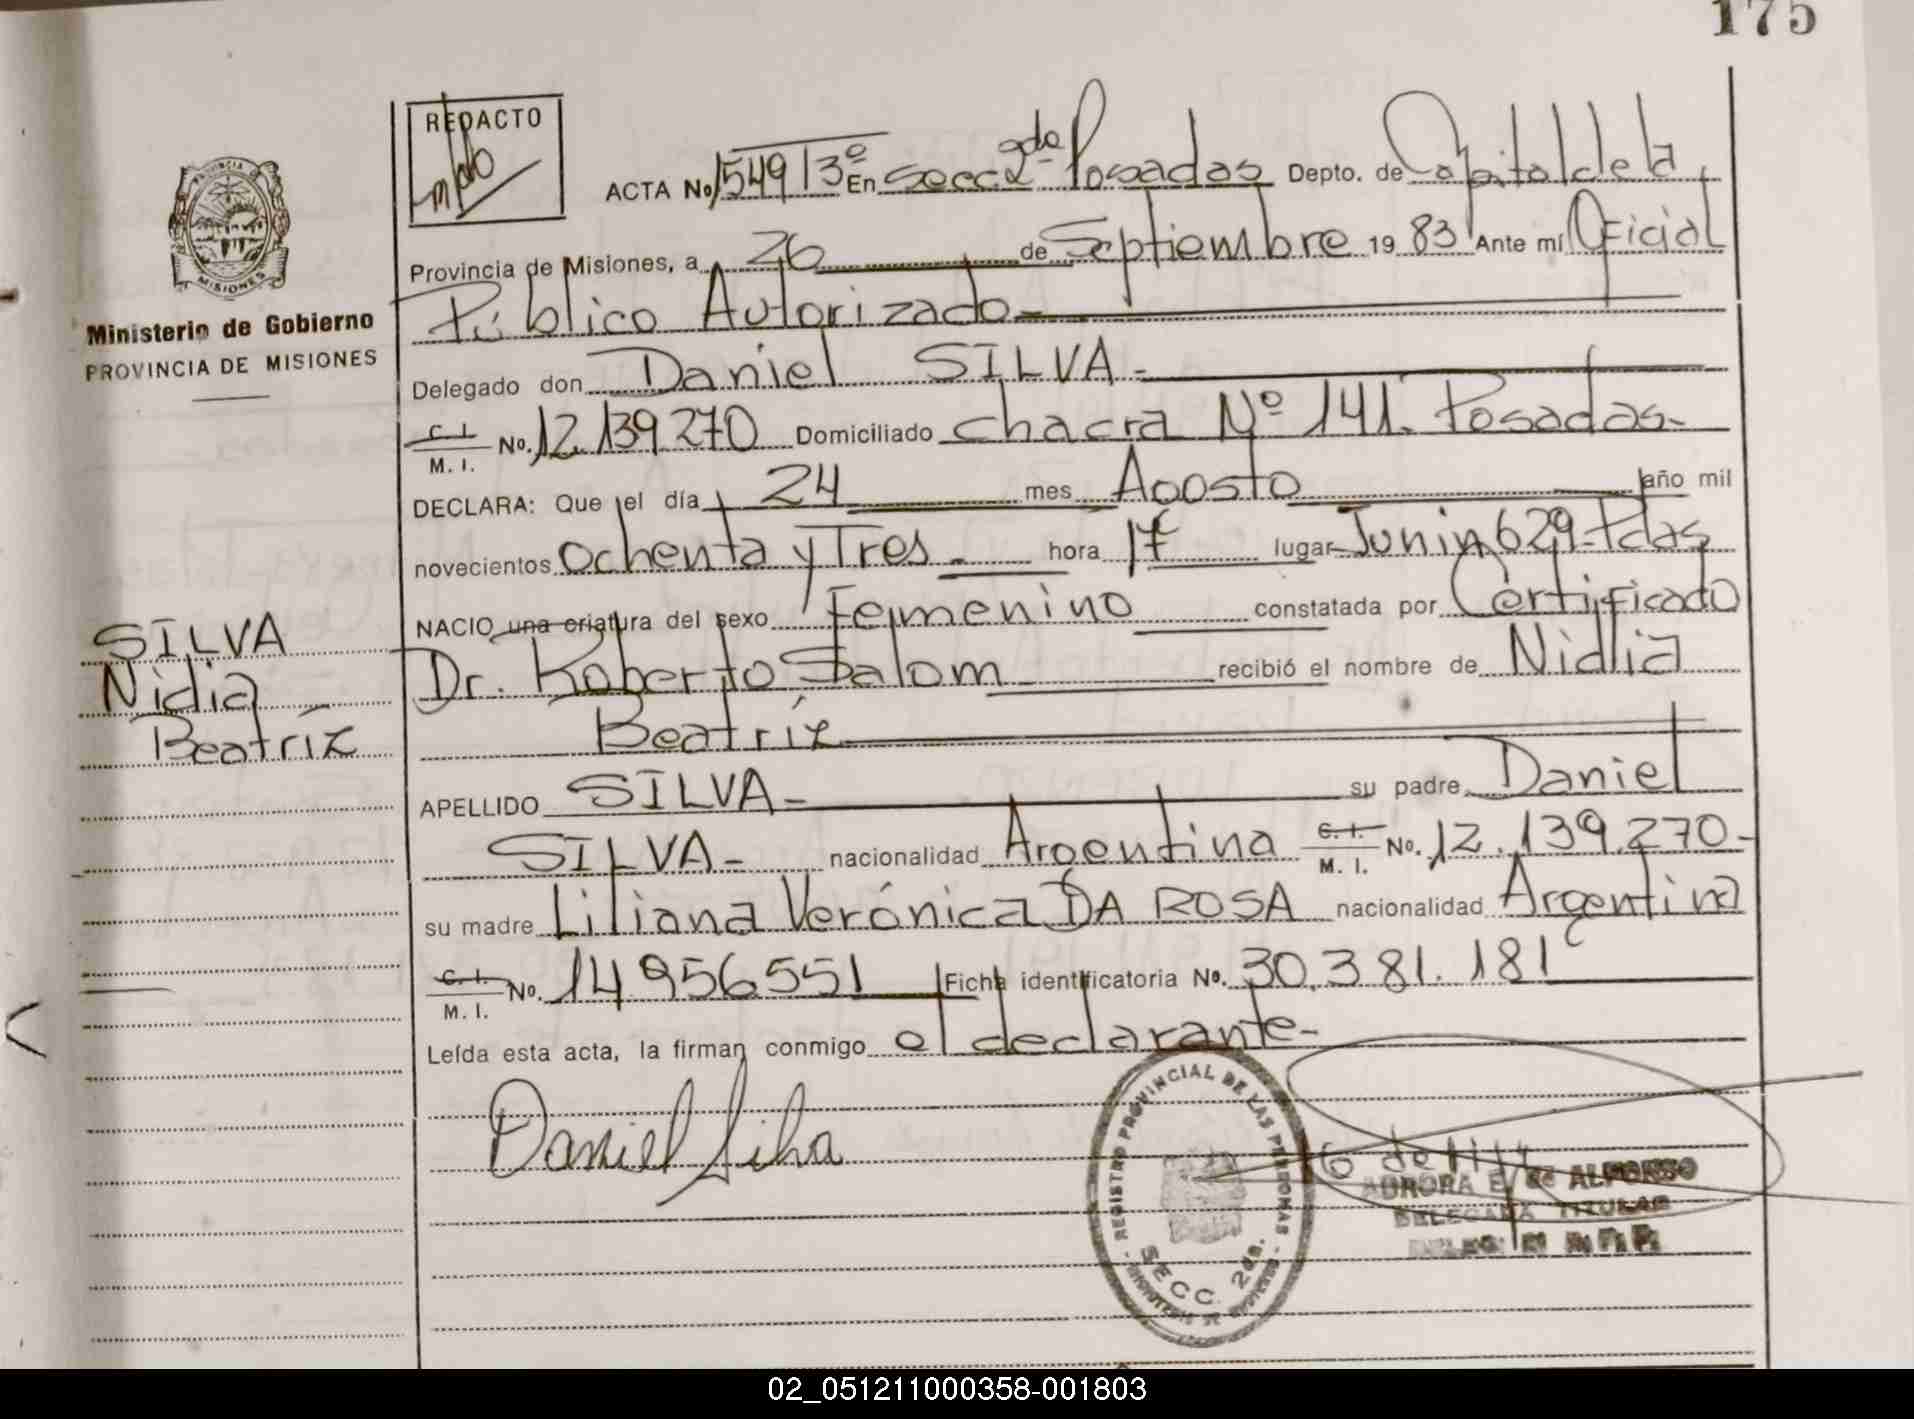 175
REDACTO
ACTA No 1549 T 3º En Secc 2da Posadas Depto. de Capital de la
Provincia de Misiones, a 26 de Septiembre 19 83 Ante mí Oficial
Público Autorizado-
Delegado don Daniel SILVA-
C. I.
M. I. No. 12.139.270 Domiciliado chacra Nº 141. Posadas-
DECLARA: Que el día 24 mes Agosto año mil
novecientos ochenta y Tres- hora 17 lugar Junin 629-Pdas
NACIO una criatura del sexo Femenino constatada por Certificado
Dr. Roberto Salom recibió el nombre de Nidia
Beatríz
APELLIDO SILVA- su padre Daniel
SILVA- nacionalidad Argentina C. I. M. I. No. 12.139.270-
su madre Liliana Verónica DA ROSA nacionalidad Argentina
C. I.
M. I. No. 14.956551 Ficha identificatoria No. 30.381.181
Leída esta acta, la firman conmigo el declarante-
Daniel Silva
PROVINCIA DE
MISIONES
Ministerio de Gobierno
PROVINCIA DE MISIONES
SILVA
Nidia
Beatríz
REGISTRO PROVINCIAL DE LAS PERSONAS
SECC. 2da.
AURORA E. de ALFONSO
DELEGADA TITULAR
02_051211000358-001803